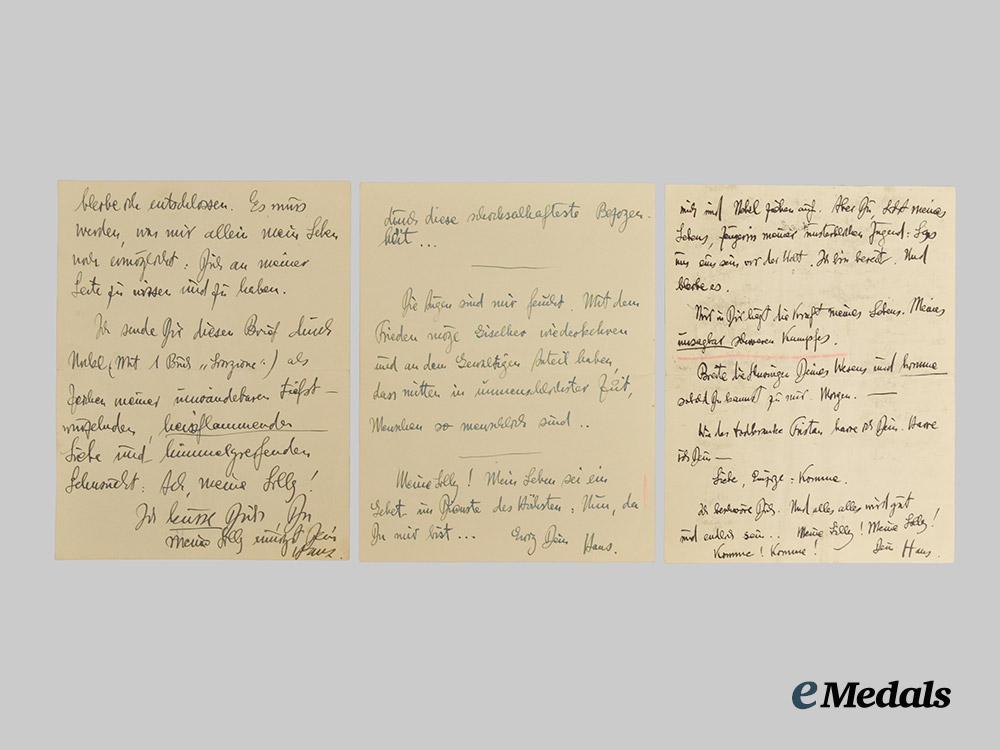 bleibe ich entschlossen. Es muss
werden, was mir allein mein Leben
noch ermöglicht: Dich an meiner
Seite zu wissen und zu haben.
Ich sende Dir diesen Brief durch
Nobel (Mit 1 Buch „ ") als
Zeichen meiner unwandelbaren tiefst-
wurzelnden, heissflammenden
Liebe und himmelgreifenden
Sehnsucht: Ach, meine Lilly!
Ich küsse Dich Du
meine Lilly einzigst Dein
Hans.
durch diese schicksalhafteste Begegen-
heit ...
Die Augen sind mir feucht. Mit dem
Frieden möge Giselher wiederkehren
und an dem Gewaltigen Anteil haben,
dass mitten in unmenschlichster Zeit,
Menschen so menschlich sind ..
Meine Lilly! Mein Leben sei ein
Gebet im Dienste des Höchsten: Nun, da
Du mir bist ... Ewig Dein Hans.
mich und Nobel auf. Aber Du, meines
Lebens, Jüngerin meiner unsterblichen Jugend: Lass
uns eins sein vor der Welt. Ich bin bereit. Und
bleibe es.
Nur in Dir liegt die Kraft meines Lebens. Meines
unsagbar schweren Kampfes.
Breite die Schwingen Deines Wesens und komme
zu mir. Morgen. —
Wie der todkranke Tristan harre ich Dein. Harre
ich Dein —
Liebe, Einzige: Komme.
Ich beschwöre Dich. Und alles alles wird gut
und endlich sein .. Meine Lilly! Meine Lilly!
Komme! Komme! Dein Hans.
eMedals